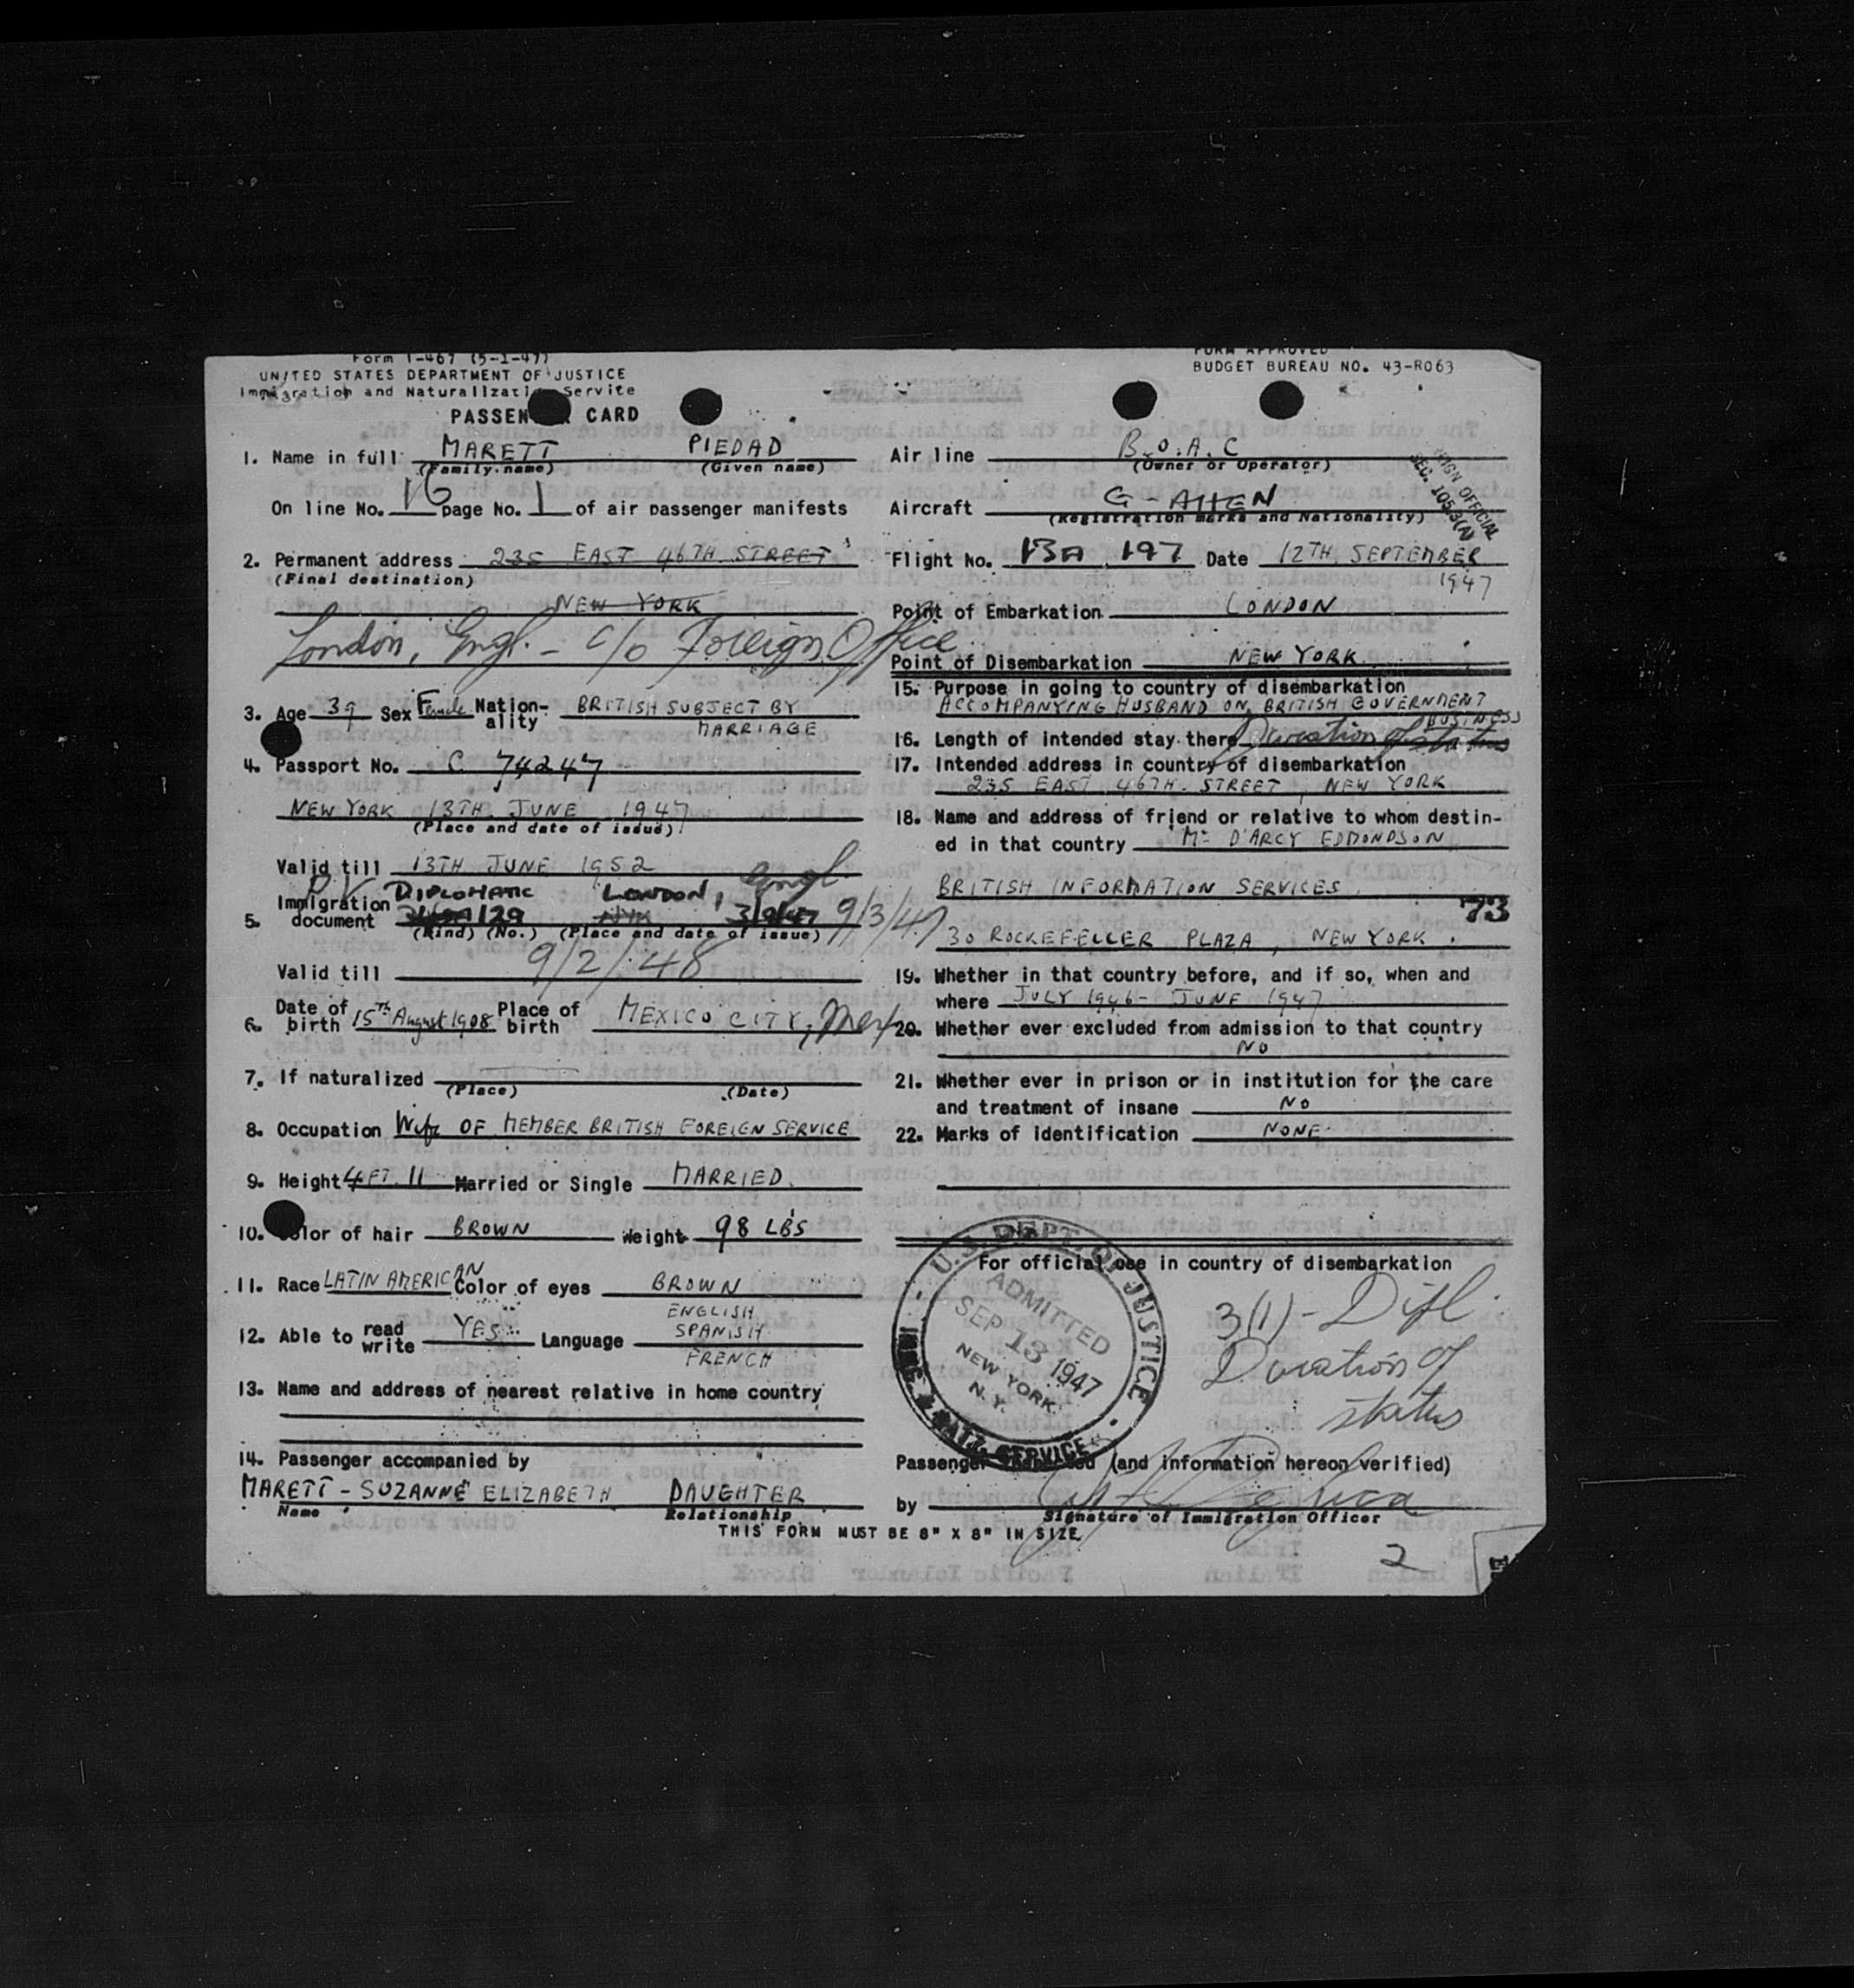 Form I-467 (5-1-47)
UNITED STATES DEPARTMENT OF JUSTICE
Immigration and Naturalization Service
PASSENGER CARD
FORM APPROVED
BUDGET BUREAU NO. 43-R063
1. Name in full MARETT PIEDAD
(Family name) (Given name)
On line No. 16 page No. 1 of air passenger manifests
2. Permanent address 235 EAST 46TH. STREET
(Final destination)
NEW YORK
London, Engl. - c/o Foreign Office
3. Age 39 Sex Female Nation-ality BRITISH SUBJECT BY
MARRIAGE
4. Passport No. C 74247
NEW YORK 13TH. JUNE 1947
(Place and date of issue)
Valid till 13TH JUNE 1952
Immigration DIPLOMATIC LONDON, Engl.
5. document 129 NYK 3/9/47 9/3/47
(Kind) (No.) (Place and date of issue)
Valid till 9/2/48
6. Date of birth 15Th August 1908 Place of birth MEXICO CITY, Mex
7. If naturalized
(Place) (Date)
8. Occupation Wife OF MEMBER BRITISH FOREIGN SERVICE
9. Height 4FT. 11 Married or Single MARRIED.
10. Color of hair BROWN Weight 98 LBS
11. Race LATIN AMERICAN Color of eyes BROWN
12. Able to read write YES Language ENGLISH
SPANISH
FRENCH
13. Name and address of nearest relative in home country
14. Passenger accompanied by
MARETT - SUZANNE ELIZABETH DAUGHTER
Name Relationship
THIS FORM MUST BE 8" X 8" IN SIZE
Air line B.O.A.C
(Owner or Operator)
FOREIGN OFFICIAL
SEC. 105.3(A)
Aircraft G-AHEN
(Registration marks and Nationality)
Flight No. BA 197 Date 12TH. SEPTEMBER
1947
Point of Embarkation LONDON
Point of Disembarkation NEW YORK.
15. Purpose in going to country of disembarkation
ACCOMPANYING HUSBAND ON BRITISH GOVERNMENT
BUSINESS
16. Length of intended stay there Duration of status
17. Intended address in country of disembarkation
235 EAST 46TH. STREET, NEW YORK
18. Name and address of friend or relative to whom destin-
ed in that country Mr D'ARCY EDMONDSON
BRITISH INFORMATION SERVICES.
73
30 ROCKEFELLER PLAZA, NEW YORK.
19. Whether in that country before, and if so, when and
where JULY 1946 - JUNE 1947
20. Whether ever excluded from admission to that country
NO
21. Whether ever in prison or in institution for the care
and treatment of insane NO
22. Marks of identification NONE
For official use in country of disembarkation
U.S. DEPT. OF JUSTICE
ADMITTED
SEP 13 1947
NEW YORK.
N.Y.
IMMG. & NATZ. SERVICE
3(1) - Dipl.
Duration of
status
Passenger (and information hereon verified)
by
Signature of Immigration Officer
2